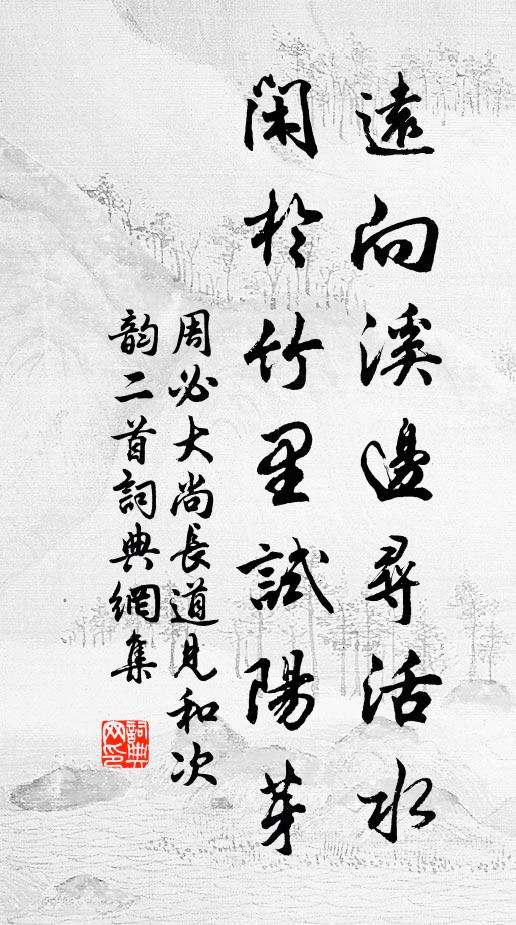 遠向溪邊尋活水
閑於竹里試陽芽
周必大尚長道見和次
韵二首詞典網集
詞典
网印